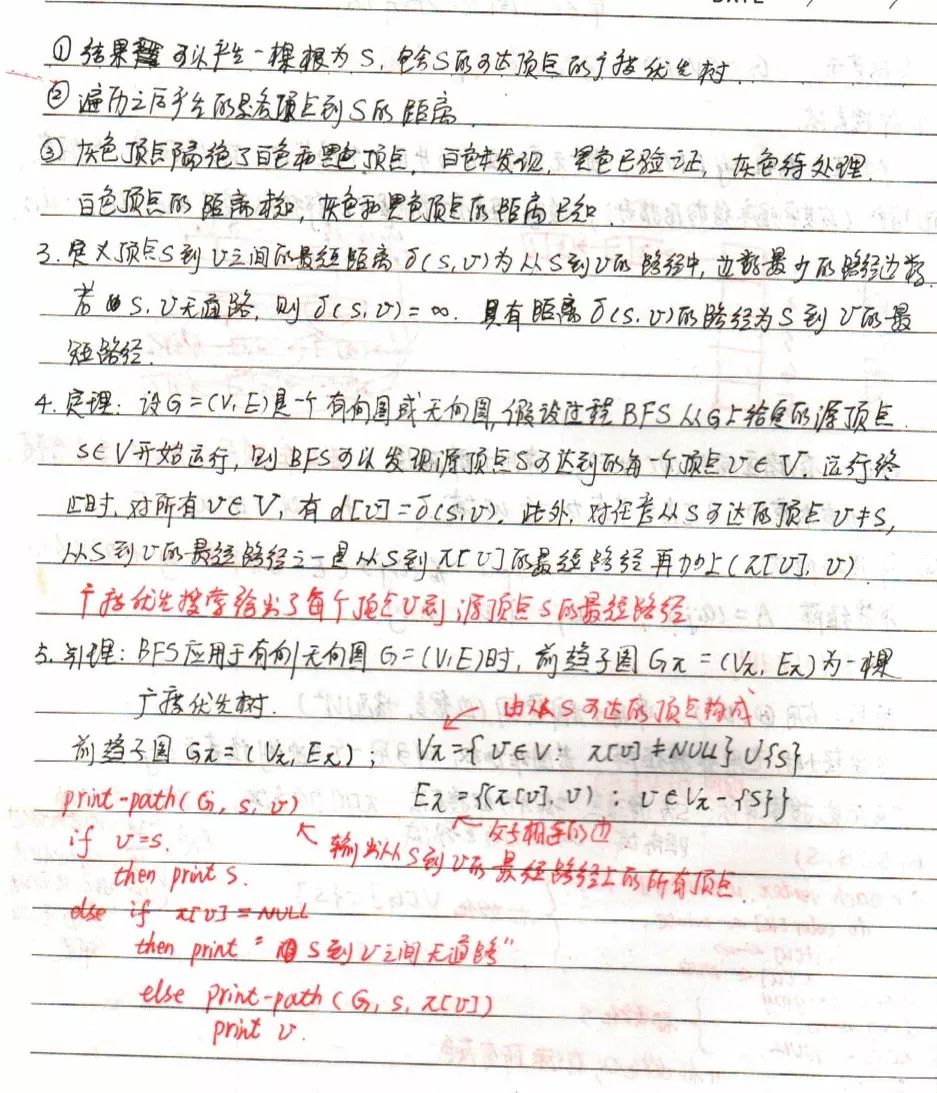 DATE
① 结果可以产生一棵根为S,包含S的可达顶点的广度优先树.
② 遍历之后产生的是各顶点到S的距离
③ 灰色顶点隔绝了白色和黑色顶点,白色未发现,黑色已验证,灰色待处理.
白色顶点的距离未知,灰色和黑色顶点的距离已知
3. 定义顶点S到v之间的最短距离δ(s,v)为从S到v的路径中,边数最少的路径边数.
若S,v无通路,则δ(s,v)=∞. 具有距离δ(s,v)的路径为S到v的最
短路径.
4. 定理:设G=(V,E)是一个有向图或无向图,假设过程BFS从G上给定的源顶点
s∈V开始运行,则BFS可以发现源顶点S可达到的每一个顶点v∈V. 运行终
止时,对所有v∈V,有d[v]=δ(s,v). 此外,对任意从S可达的顶点v≠s,
从S到v的最短路径之一是从S到π[v]的最短路径再加上(π[v],v)
广度优先搜索给出了每个顶点v到源顶点S的最短路径
5. 引理:BFS应用于有向/无向图G=(V,E)时,前趋子图Gπ=(Vπ,Eπ)为一棵
广度优先树.
由从S可达的顶点构成
前趋子图Gπ=(Vπ,Eπ); Vπ={v∈V: π[v]≠NULL}∪{s}
print-path(G,s,v) Eπ={(π[v],v): v∈Vπ-{s}}
父子相连的边
if v=s. 输出从S到v的最短路径上的所有顶点
then print s.
else if π[v]=NULL
then print "S到v之间无通路"
else print-path(G,s,π[v])
print v.